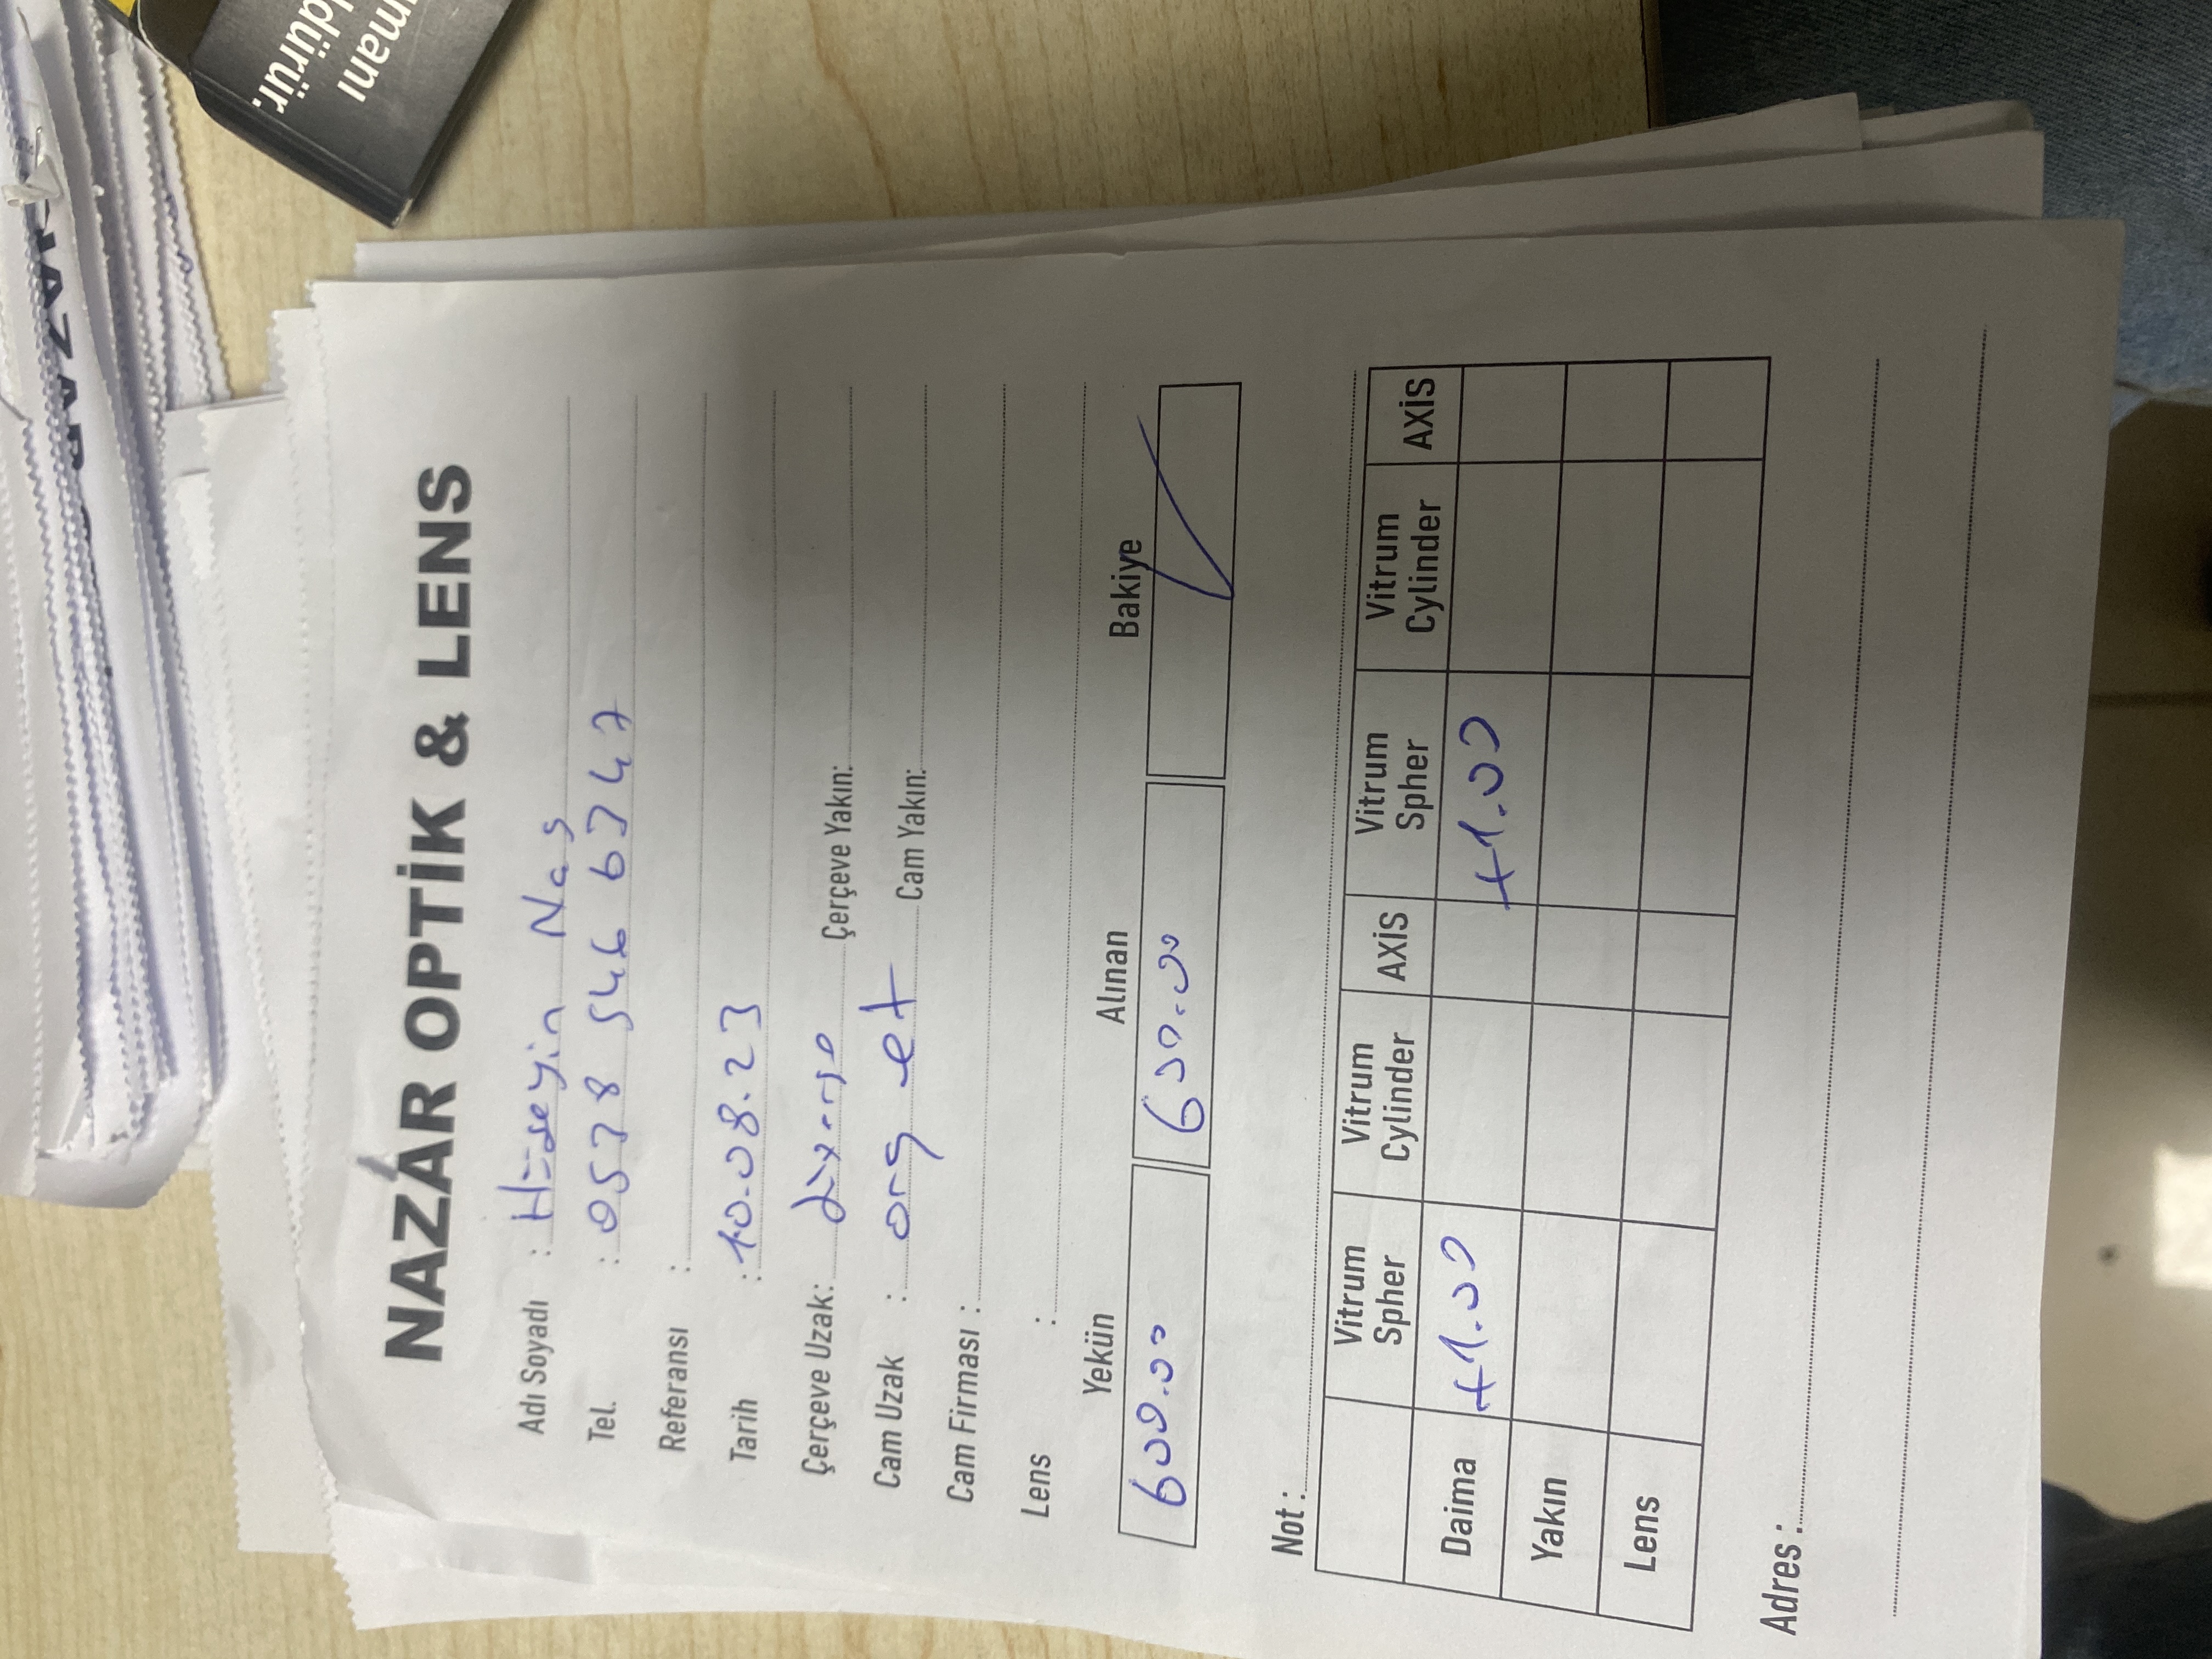 NAZAR
NAZAR OPTİK & LENS
Adı Soyadı : Hüseyin Nas
Tel. : 0538 546 6347
Referansı :
Tarih : 10.08.23
Çerçeve Uzak: Çerçeve Yakın:
Cam Uzak : org et Cam Yakın:
Cam Firması :
Lens :
Yekün Alınan Bakiye
600.00 600.00
Not :
Vitrum Spher Vitrum Cylinder AXİS Vitrum Spher Vitrum Cylinder AXİS
Daima +1.00 +1.00
Yakın
Lens
Adres :